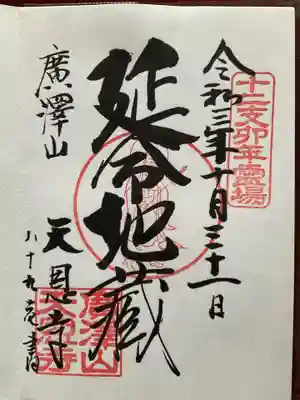 十二支卯年靈場
令和三年十月三十一日
延命地蔵
廣澤山
天恩寺
八十九
書
廣澤山
天恩寺